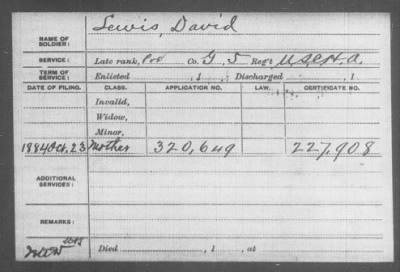 Lewis, David
NAME OF SOLDIER:
SERVICE: Late rank, Co. G, 5 Reg't
TERM OF SERVICE: Enlisted , 1 Discharged , 1
DATE OF FILING. CLASS. APPLICATION NO. LAW. CERTIFICATE NO.
Invalid,
Widow,
Minor,
1884 Oct. 23 Mother 320,649 227,908
ADDITIONAL SERVICES:
REMARKS:
Died , 1 , at